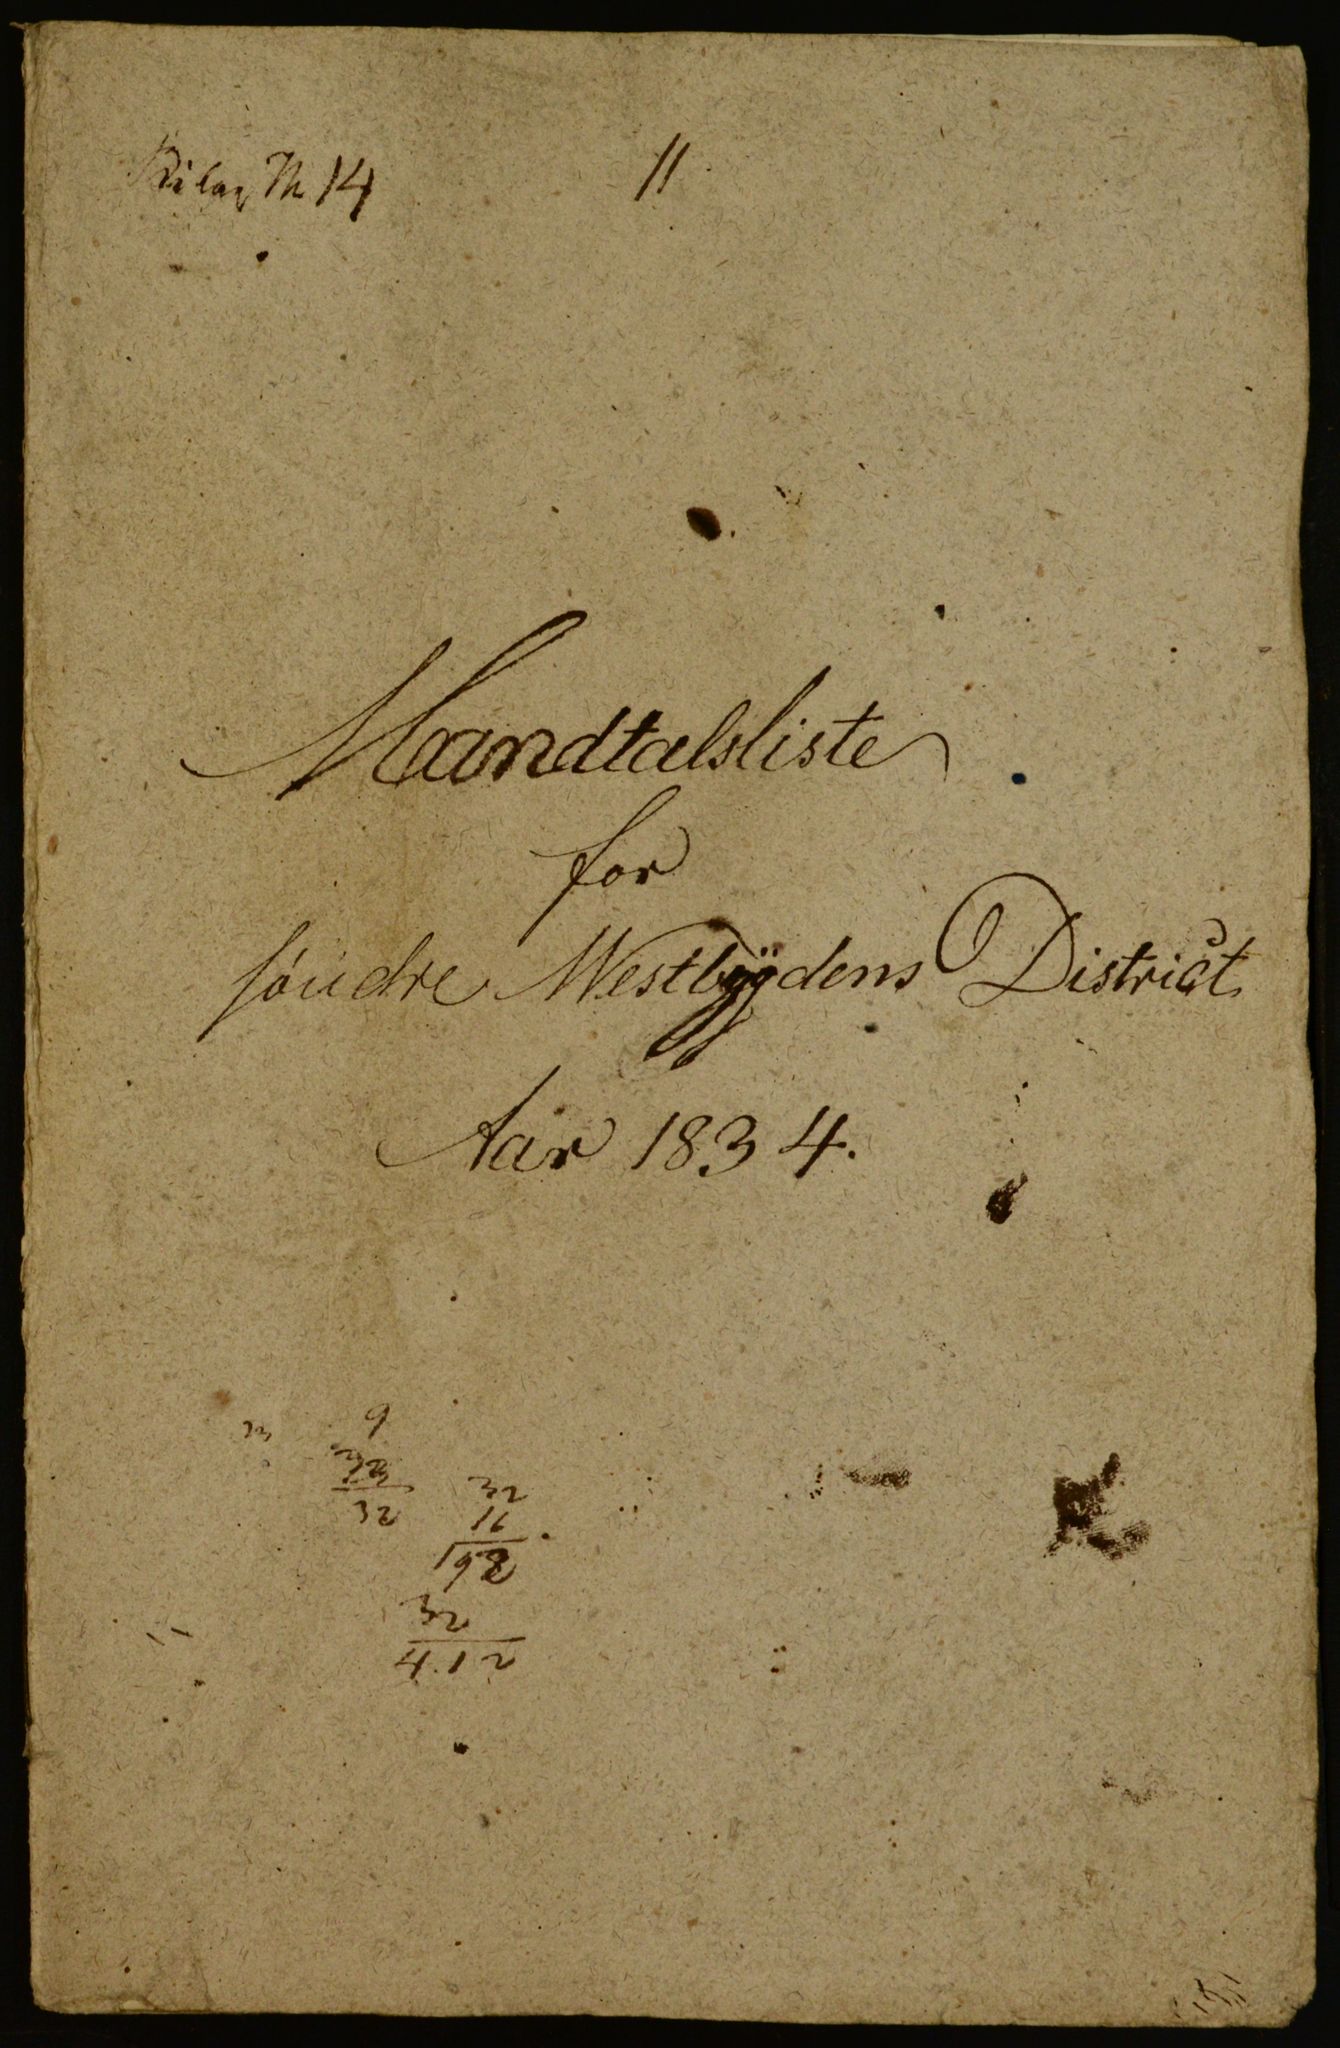 Bilag No 14
11
Mandtalsliste
for
søndre Westbÿgdens District
Aar 1834.
9
23
32
32
16
192
32
4.12